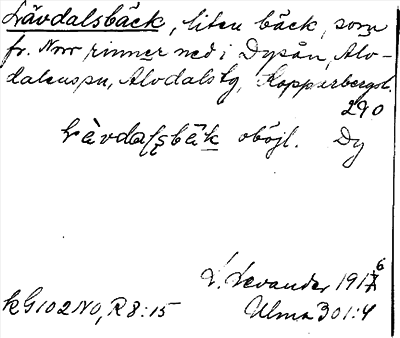 Lävdalsbäck, liten bäck, som
fr. Norr rinner ned i Dysån, Älv-
dalens sn, Älvdals tg, Kopparbergs l.
290
oböjl. Dy
L. Levander 1916
kG102NO, R8:15
Ulma 301:4